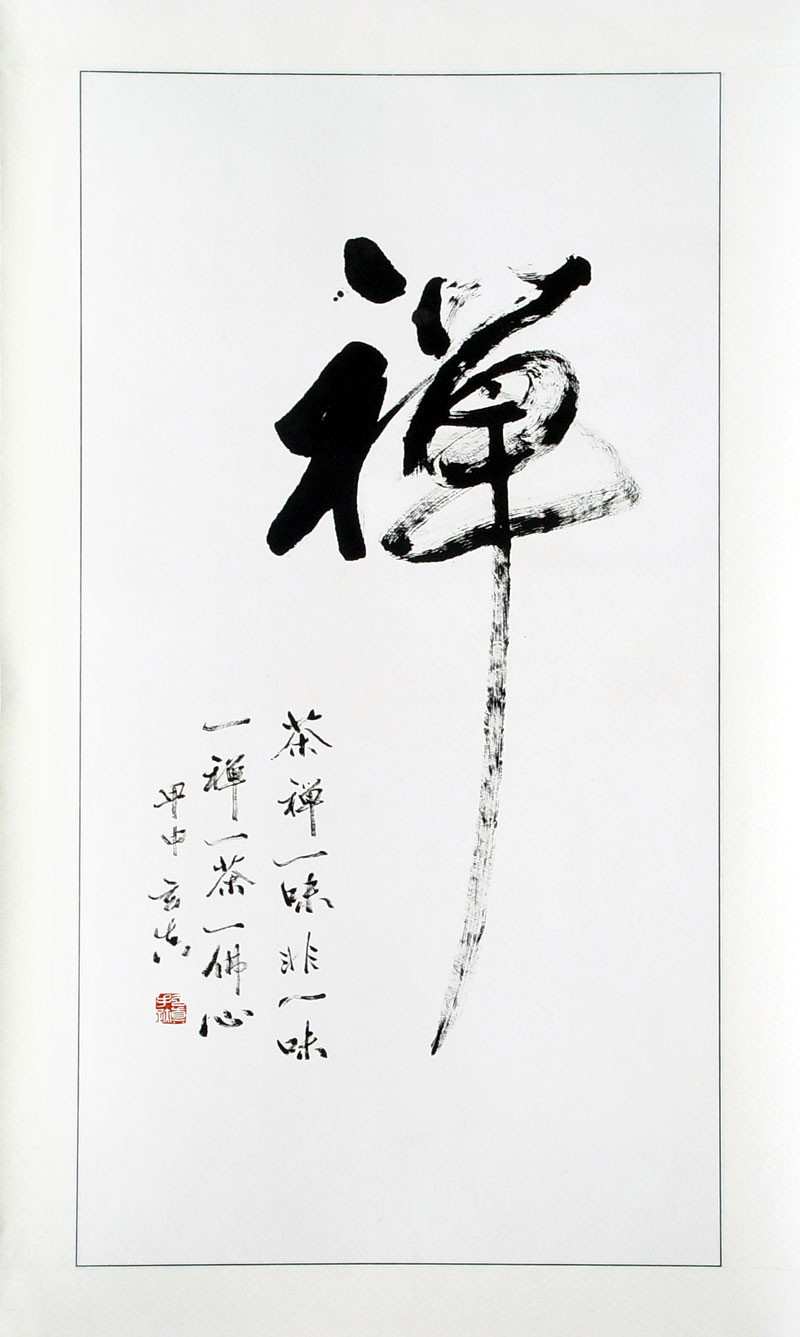 禅
茶禅一味非一味
一禅一茶一佛心
甲申 玄